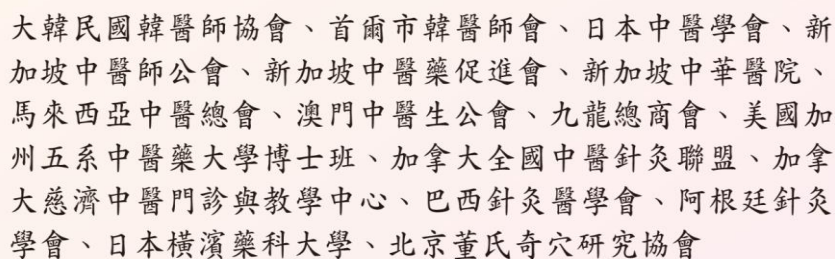 大韓民國韓醫師協會、首爾市韓醫師會、日本中醫學會、新
加坡中醫師公會、新加坡中醫藥促進會、新加坡中華醫院、
馬來西亞中醫總會、澳門中醫生公會、九龍總商會、美國加
州五系中醫藥大學博士班、加拿大全國中醫針灸聯盟、加拿
大慈濟中醫門診與教學中心、巴西針灸醫學會、阿根廷針灸
學會、日本橫濱藥科大學、北京董氏奇穴研究協會